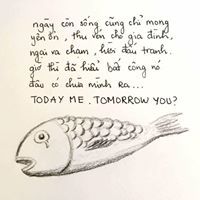 ngày còn sống cũng chỉ mong
yên ổn, thu vén cho gia đình,
ngại va chạm, lười đấu tranh.
giờ thì đã hiểu bất công nó
đâu có chừa mình ra...
TODAY ME. TOMORROW YOU?